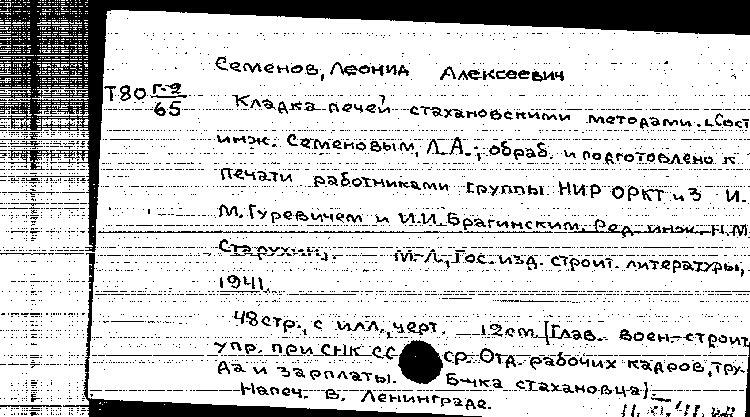 Семенов, Леонид Алексеевич
Т80 Г-9
65
Кладка печей стахановскими методами. [Сост.
инж. Семеновым, Л.А.; обраб. и подготовлено к
печати работниками группы НИР ОРКТ и З И.
М. Гуревичем и И.И. Брагинским. Ред. инж. Н.М.
Старухин].  М.-Л., Гос. изд. строит. литературы,
1941.
48 стр., с илл., черт.  12 см. [Глав. воен.-строит.
упр. при СНК СС ср. Отд. рабочих кадров, тру-
да и зарплаты. Б-чка стахановца].
Напеч. в. Ленинграде.